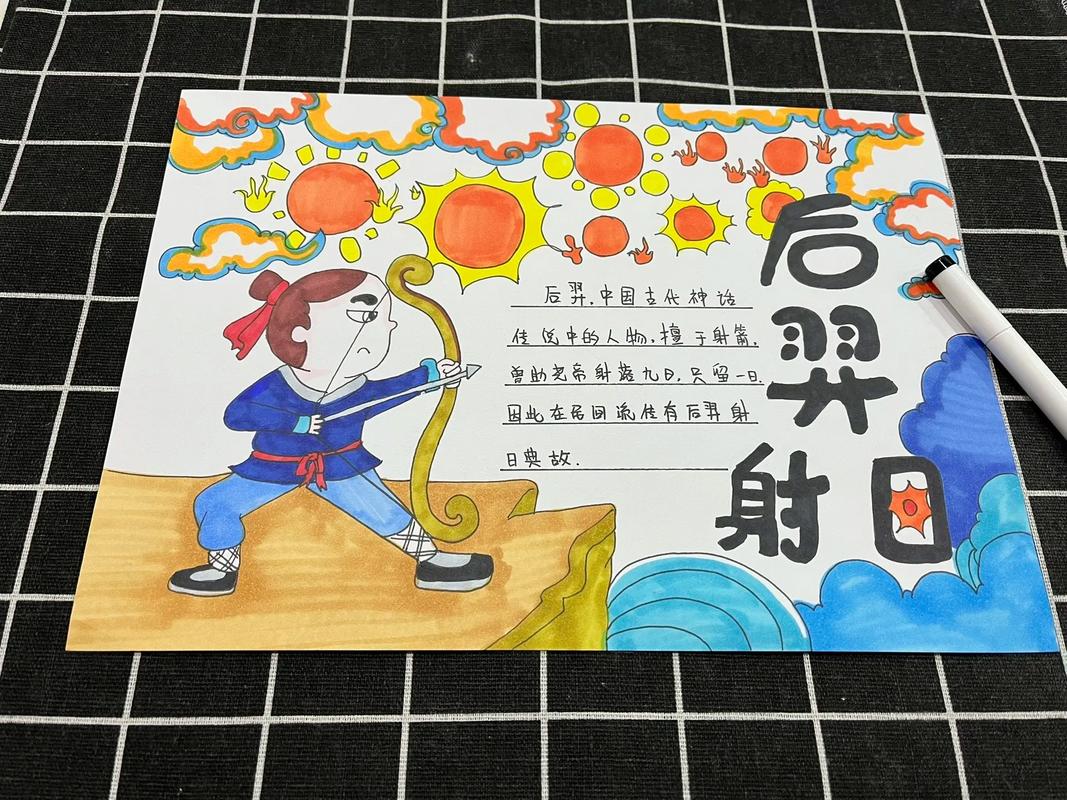 后羿射日
后羿,中国古代神话
传说中的人物,擅于射箭,
曾助尧帝射落九日,只留一日,
因此在民间流传有后羿射
日典故.